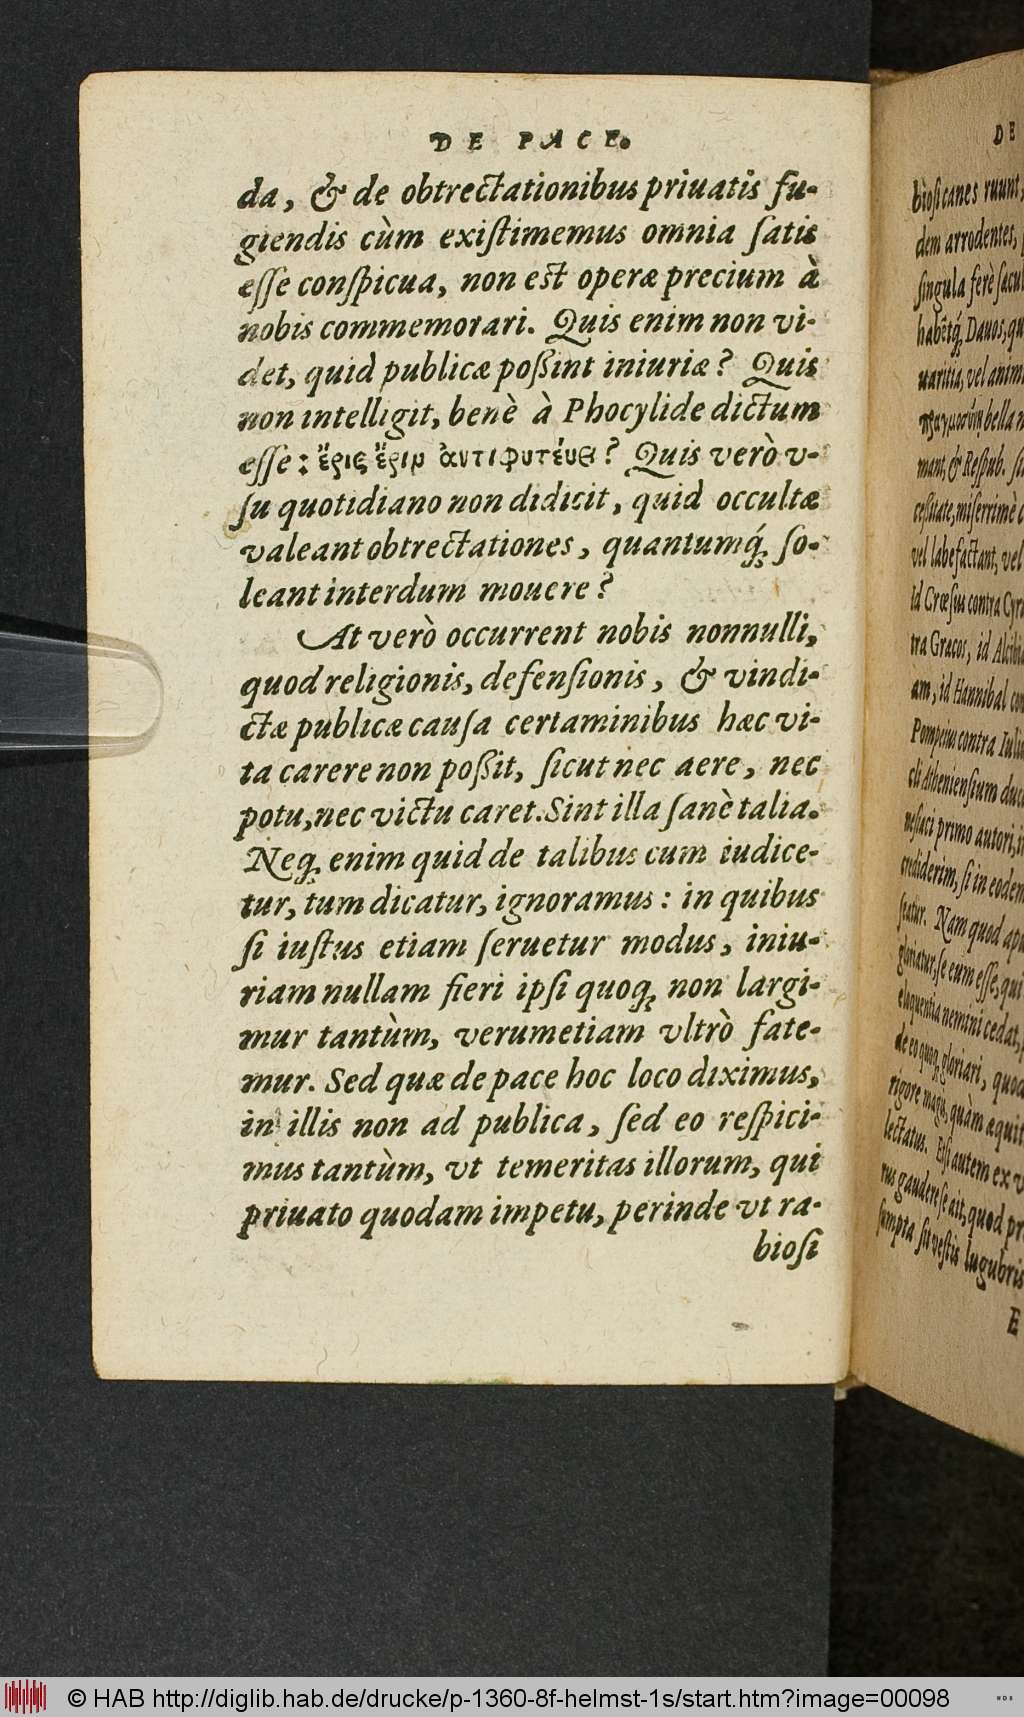 DE PACE.
da, & de obtrectationibus priuatis fu-
giendis cùm existimemus omnia satis
esse conspicua, non est operæ precium à
nobis commemorari. Quis enim non vi-
det, quid publicæ poßint iniuriæ? Quis
non intelligit, benè à Phocylide dictum
esse: ἔρις ἔριν ἀντιφυτεύει? Quis verò v-
su quotidiano non didicit, quid occultæ
valeant obtrectationes, quantumq́; so-
leant interdum mouere?
At verò occurrent nobis nonnulli,
quod religionis, defensionis, & vindi-
ctæ publicæ causa certaminibus hæc vi-
ta carere non poßit, sicut nec aere, nec
potu, nec victu caret. Sint illa sanè talia.
Neq; enim quid de talibus cum iudice-
tur, tum dicatur, ignoramus: in quibus
si iustus etiam seruetur modus, iniu-
riam nullam fieri ipsi quoq; non largi-
mur tantùm, verumetiam vltrò fate-
mur. Sed quæ de pace hoc loco diximus,
in illis non ad publica, sed eo respici-
mus tantùm, vt temeritas illorum, qui
priuato quodam impetu, perinde vt ra-
biosi
DE
biosi canes ruunt,
dem arrodentes,
singula ferè
Dauos,
uaritia, vel
bella
mant, & Respub.
miserrimè
vel labefactant, vel
id Crœsus contra
tra Græcos, id
am, id Hannibal
Pompeius contra
cli Atheniensium
primo autori,
crediderim, si in eodem
Nam quod
gloriatur, se cum esse, qui
eloquentia nemini cedat,
de eo quoq; gloriari,
rigore magis, quàm
lectatus. autem ex
rus gaudere se ait, quod
sumpta sit vestis lugubris
E
© HAB http://diglib.hab.de/drucke/p-1360-8f-helmst-1s/start.htm?image=00098